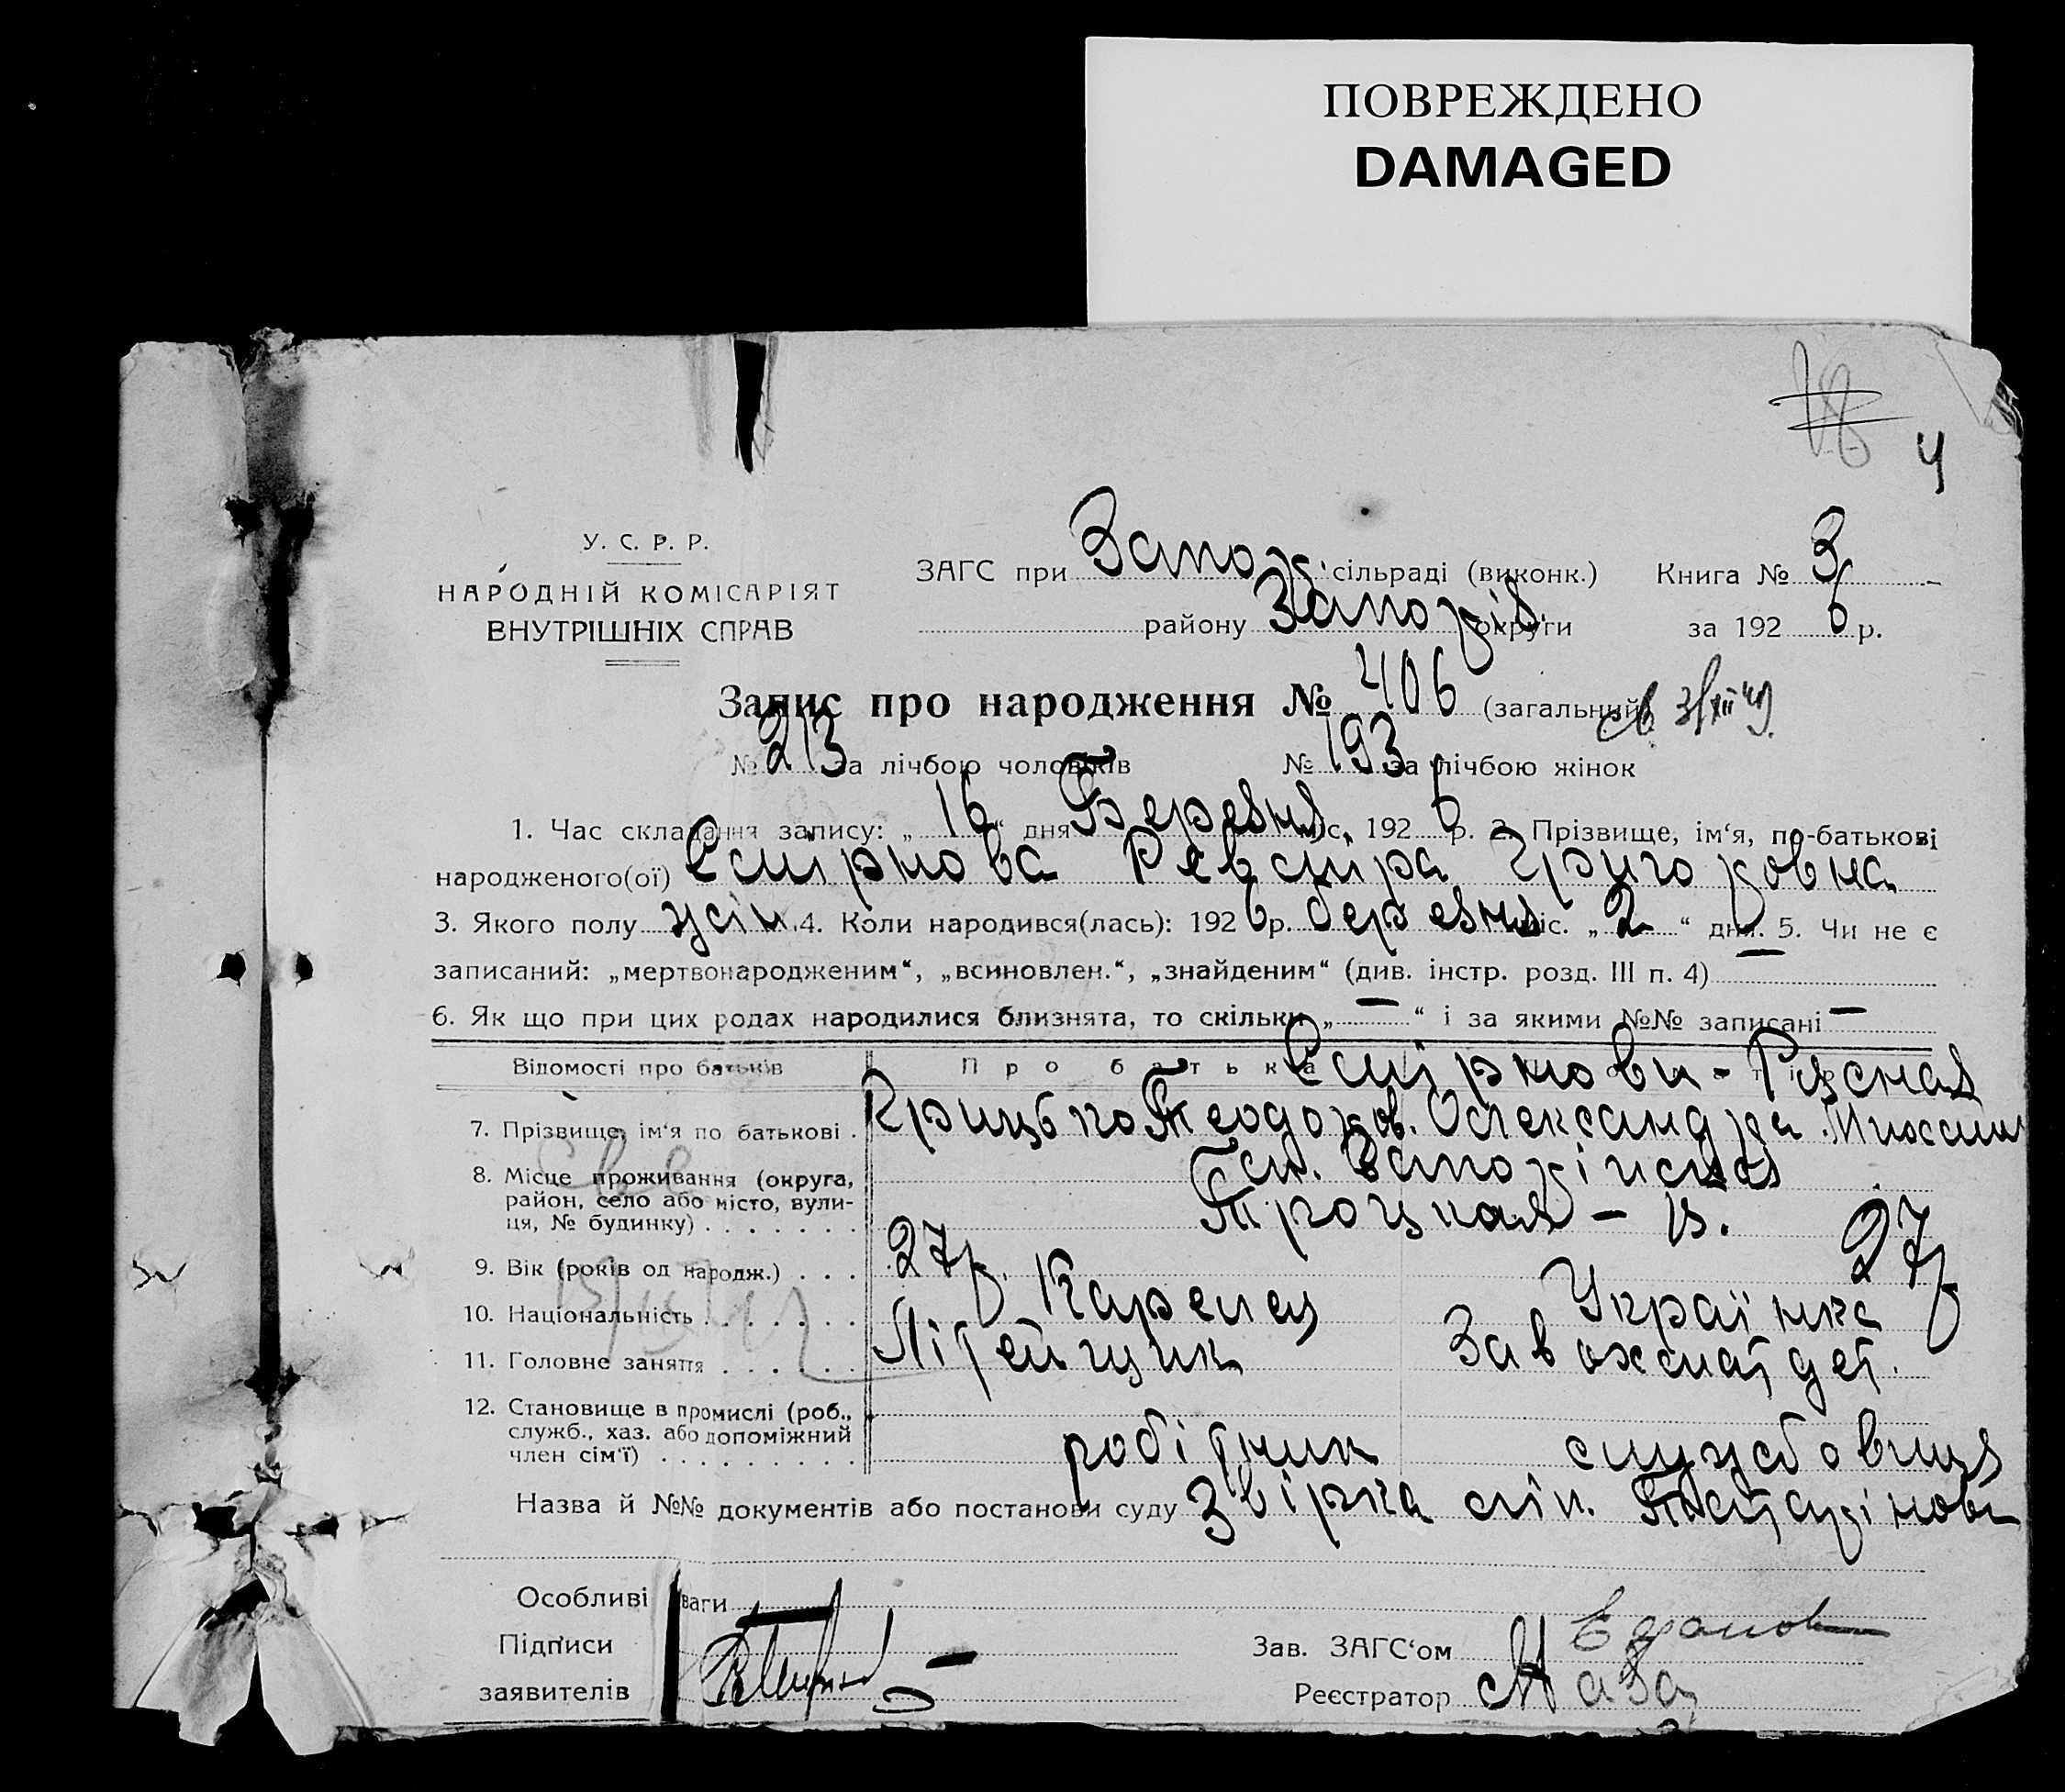 ПОВРЕЖДЕНО
DAMAGED
4
У. С. Р. Р.
НАРОДНІЙ КОМІСАРІЯТ
ВНУТРІШНІХ СПРАВ
ЗАГС при Запож. сільраді (виконк.) Книга № 3
району Запоріз. округи за 1926 р.
Запис про народження № 406 (загальний)
№ 213 за лічбою чоловіків № 193 за лічбою жінок
1. Час складання запису: „16“ дня Березня міс. 1926 р. 2. Прізвище, ім‘я, по-батькові
народженого(ої) Смірнова Ревміра Григоровна
3. Якого полу жін. 4. Коли народився(лась): 1926 р. березня міс. „2“ дня. 5. Чи не є
записаний: „мертвонародженим“, „всиновлен.“, „знайденим“ (див. інстр. розд. III п. 4) —
6. Як що при цих родах народилися близнята, то скільки „—“ і за якими №№ записані —
Відомості про батьків Про батька Смірнови -
7. Прізвище, ім‘я по батькові . Грицько Теодоров. Олександра
8. Місце проживання (округа, район, село або місто, вулиця, № будинку) . . . . . . .
Троцкая -
9. Вік (років од народж.) . . . 27р. 27р
10. Національність . . . . . . . Карел Українка
11. Головне заняття . . . . . . Літейщик
12. Становище в промислі (роб., служб., хаз. або допоміжний член сім‘ї) . . . . . . . . .
робітник службовиця
Назва й №№ документів або постанови суду Звірка
Особливі уваги
Підписи
заявителів
Зав. ЗАГС‘ом
Реєстратор